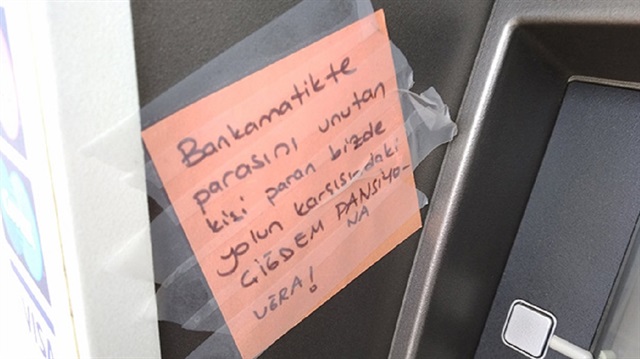 Bankamatikte
parasını unutan
kişi paran bizde
yolun karşısındaki
ÇİĞDEM PANSİYO-
NA
UĞRA!
VISA